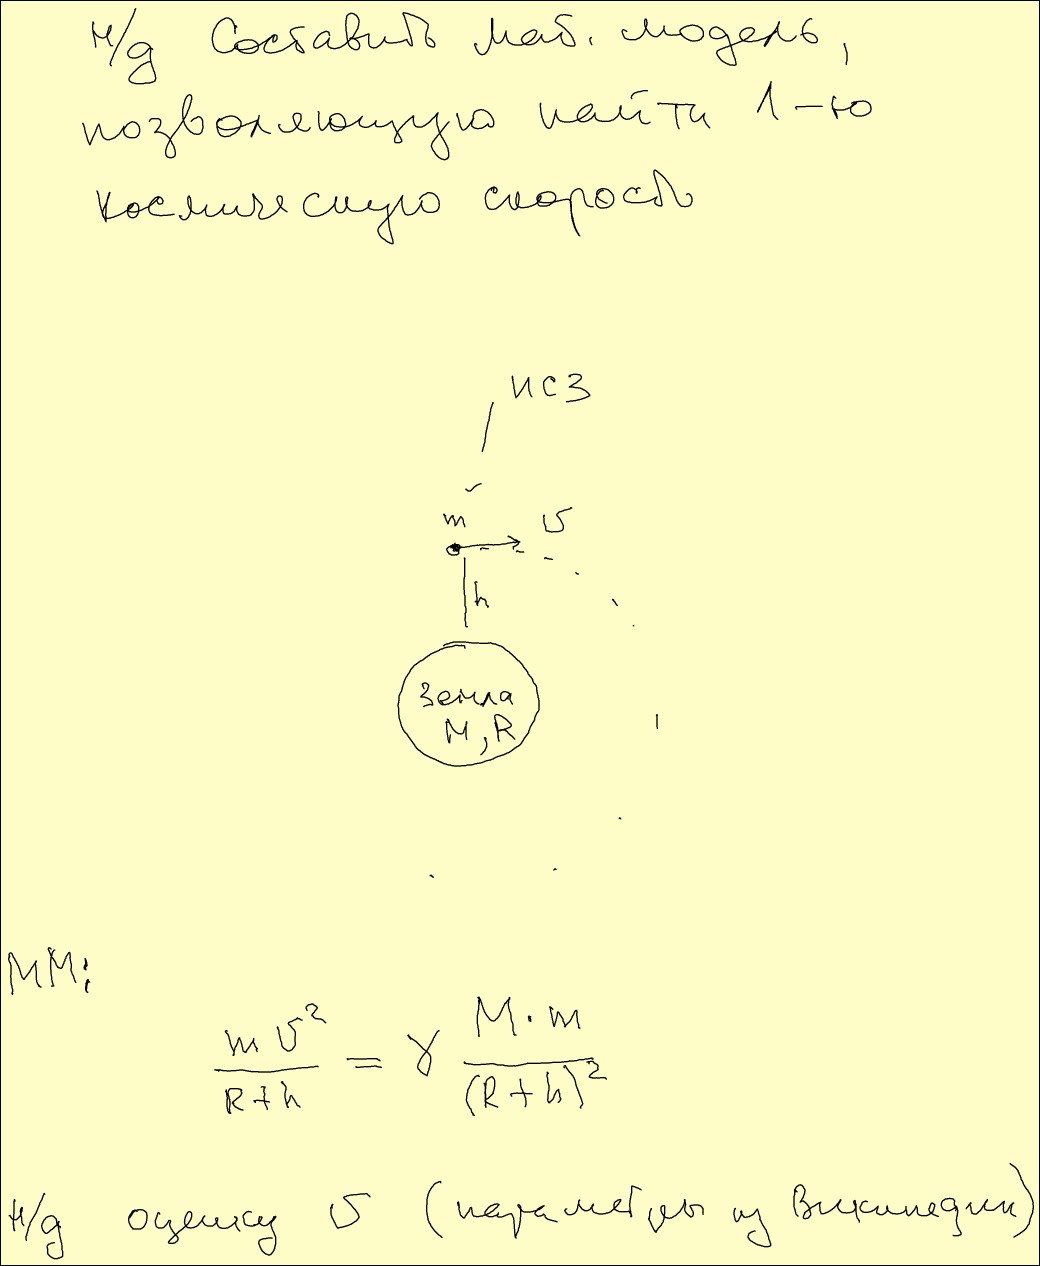 н/д Составить мат. модель,
позволяющую найти 1-ю
космическую скорость
ИСЗ
m v
h
Земля
M, R
ММ:
m v² / (R+h) = γ M·m / (R+h)²
н/д оценку v (параметры из Википедии)